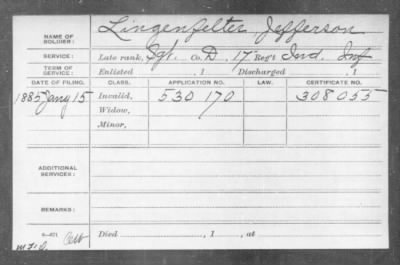 NAME OF SOLDIER: Lingenfelter Jefferson
SERVICE: Late rank, Sgt. Co. D, 17 Reg't Ind. Inf
TERM OF SERVICE: Enlisted , 1 Discharged , 1
DATE OF FILING. CLASS. APPLICATION NO. LAW. CERTIFICATE NO.
1885 Jany 15 Invalid, 530 170 308 055
Widow,
Minor,
ADDITIONAL SERVICES:
REMARKS:
Died , 1 , at